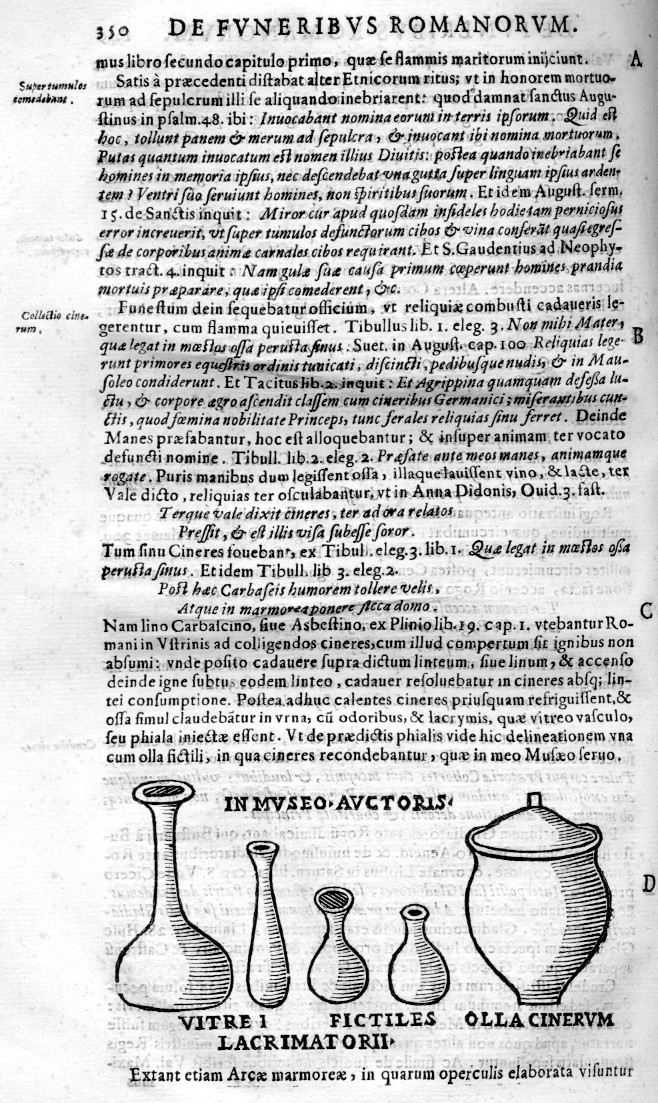 350 DE FVNERIBVS ROMANORVM.
mus libro secundo capitulo primo, quæ se flammis maritorum inijciunt. A
Super tumulos comedebant.
Satis à præcedenti distabat alter Etnicorum ritus; vt in honorem mortuo-
rum ad sepulcrum illi se aliquando inebriarent: quod damnat sanctus Augu-
stinus in psalm.48. ibi: Inuocabant nomina eorum in terris ipsorum. Quid est
hoc, tollunt panem & merum ad sepulcra, & inuocant ibi nomina mortuorum.
Putas quantum inuocatum est nomen illius Diuitis: postea quando inebriabant se
homines in memoria ipsius, nec descendebat vna gutta super linguam ipsius arden-
tem? Ventri suo seruiunt homines, non spiritibus suorum. Et idem August. serm.
15. de Sanctis inquit: Miror cur apud quosdam infideles hodie tam perniciosus
error increuerit, vt super tumulos defunctorum cibos & vina conferāt quasi egres-
sæ de corporibus animæ carnales cibos requirant. Et S. Gaudentius ad Neophy-
tos tract. 4. inquit: Nam gulæ suæ causa primum cœperunt homines prandia
mortuis præparare, quæ ipsi comederent, &c.
Collectio cine-
rum.
Funestum dein sequebatur officium, vt reliquiæ combusti cadaueris le-
gerentur, cum flamma quieuisset. Tibullus lib. 1. eleg. 3. Non mihi Mater,
quæ legat in mœstos ossa perusta sinus: Suet. in August. cap. 100 Reliquias lege- B
runt primores equestris ordinis tunicati, discincti, pedibusque nudis, & in Mau-
soleo condiderunt. Et Tacitus lib. 2. inquit: Et Agrippina quamquam defessa lu-
ctu, & corpore ægro ascendit classem cum cineribus Germanici; miserantibus cun-
ctis, quod fœmina nobilitate Princeps, tunc ferales reliquias sinu ferret. Deinde
Manes præfabantur, hoc est alloquebantur; & insuper animam ter vocato
defuncti nomine. Tibull. lib. 2. eleg. 2. Præfate ante meos manes, animamque
rogate. Puris manibus dum legissent ossa, illaque lauissent vino, & lacte, ter
Vale dicto, reliquias ter osculabantur, vt in Anna Didonis, Ouid. 3. fast.
Terque vale dixit cineres, ter ad ora relatos
Pressit, & est illis visa subesse soror.
Tum sinu Cineres fouebant, ex Tibul. eleg.3. lib. 1. Quæ legat in mœstos ossa
perusta sinus. Et idem Tibull. lib 3. eleg.2.
Post hæc Carbaseis humorem tollere velis,
Atque in marmorea ponere sicca domo. C
Nam lino Carbalcino, siue Asbestino, ex Plinio lib. 19. cap. 1. vtebantur Ro-
mani in Vstrinis ad colligendos cineres, cum illud compertum sit ignibus non
absumi: vnde posito cadauere supra dictum linteum, siue linum, & accenso
deinde igne subtus eodem linteo, cadauer resoluebatur in cineres absq; lin-
tei consumptione. Postea adhuc calentes cineres priusquam refriguissent, &
ossa simul claudebātur in vrna, cū odoribus, & lacrymis, quæ vitreo vasculo,
seu phiala iniectæ essent. Vt de prædictis phialis vide hic delineationem vna
cum olla fictili, in qua cineres recondebantur, quæ in meo Musæo seruo.
IN MVSEO AVCTORIS
D
VITREI FICTILES OLLA CINERVM
LACRIMATORII
Extant etiam Arcæ marmoreæ, in quarum operculis elaborata visuntur